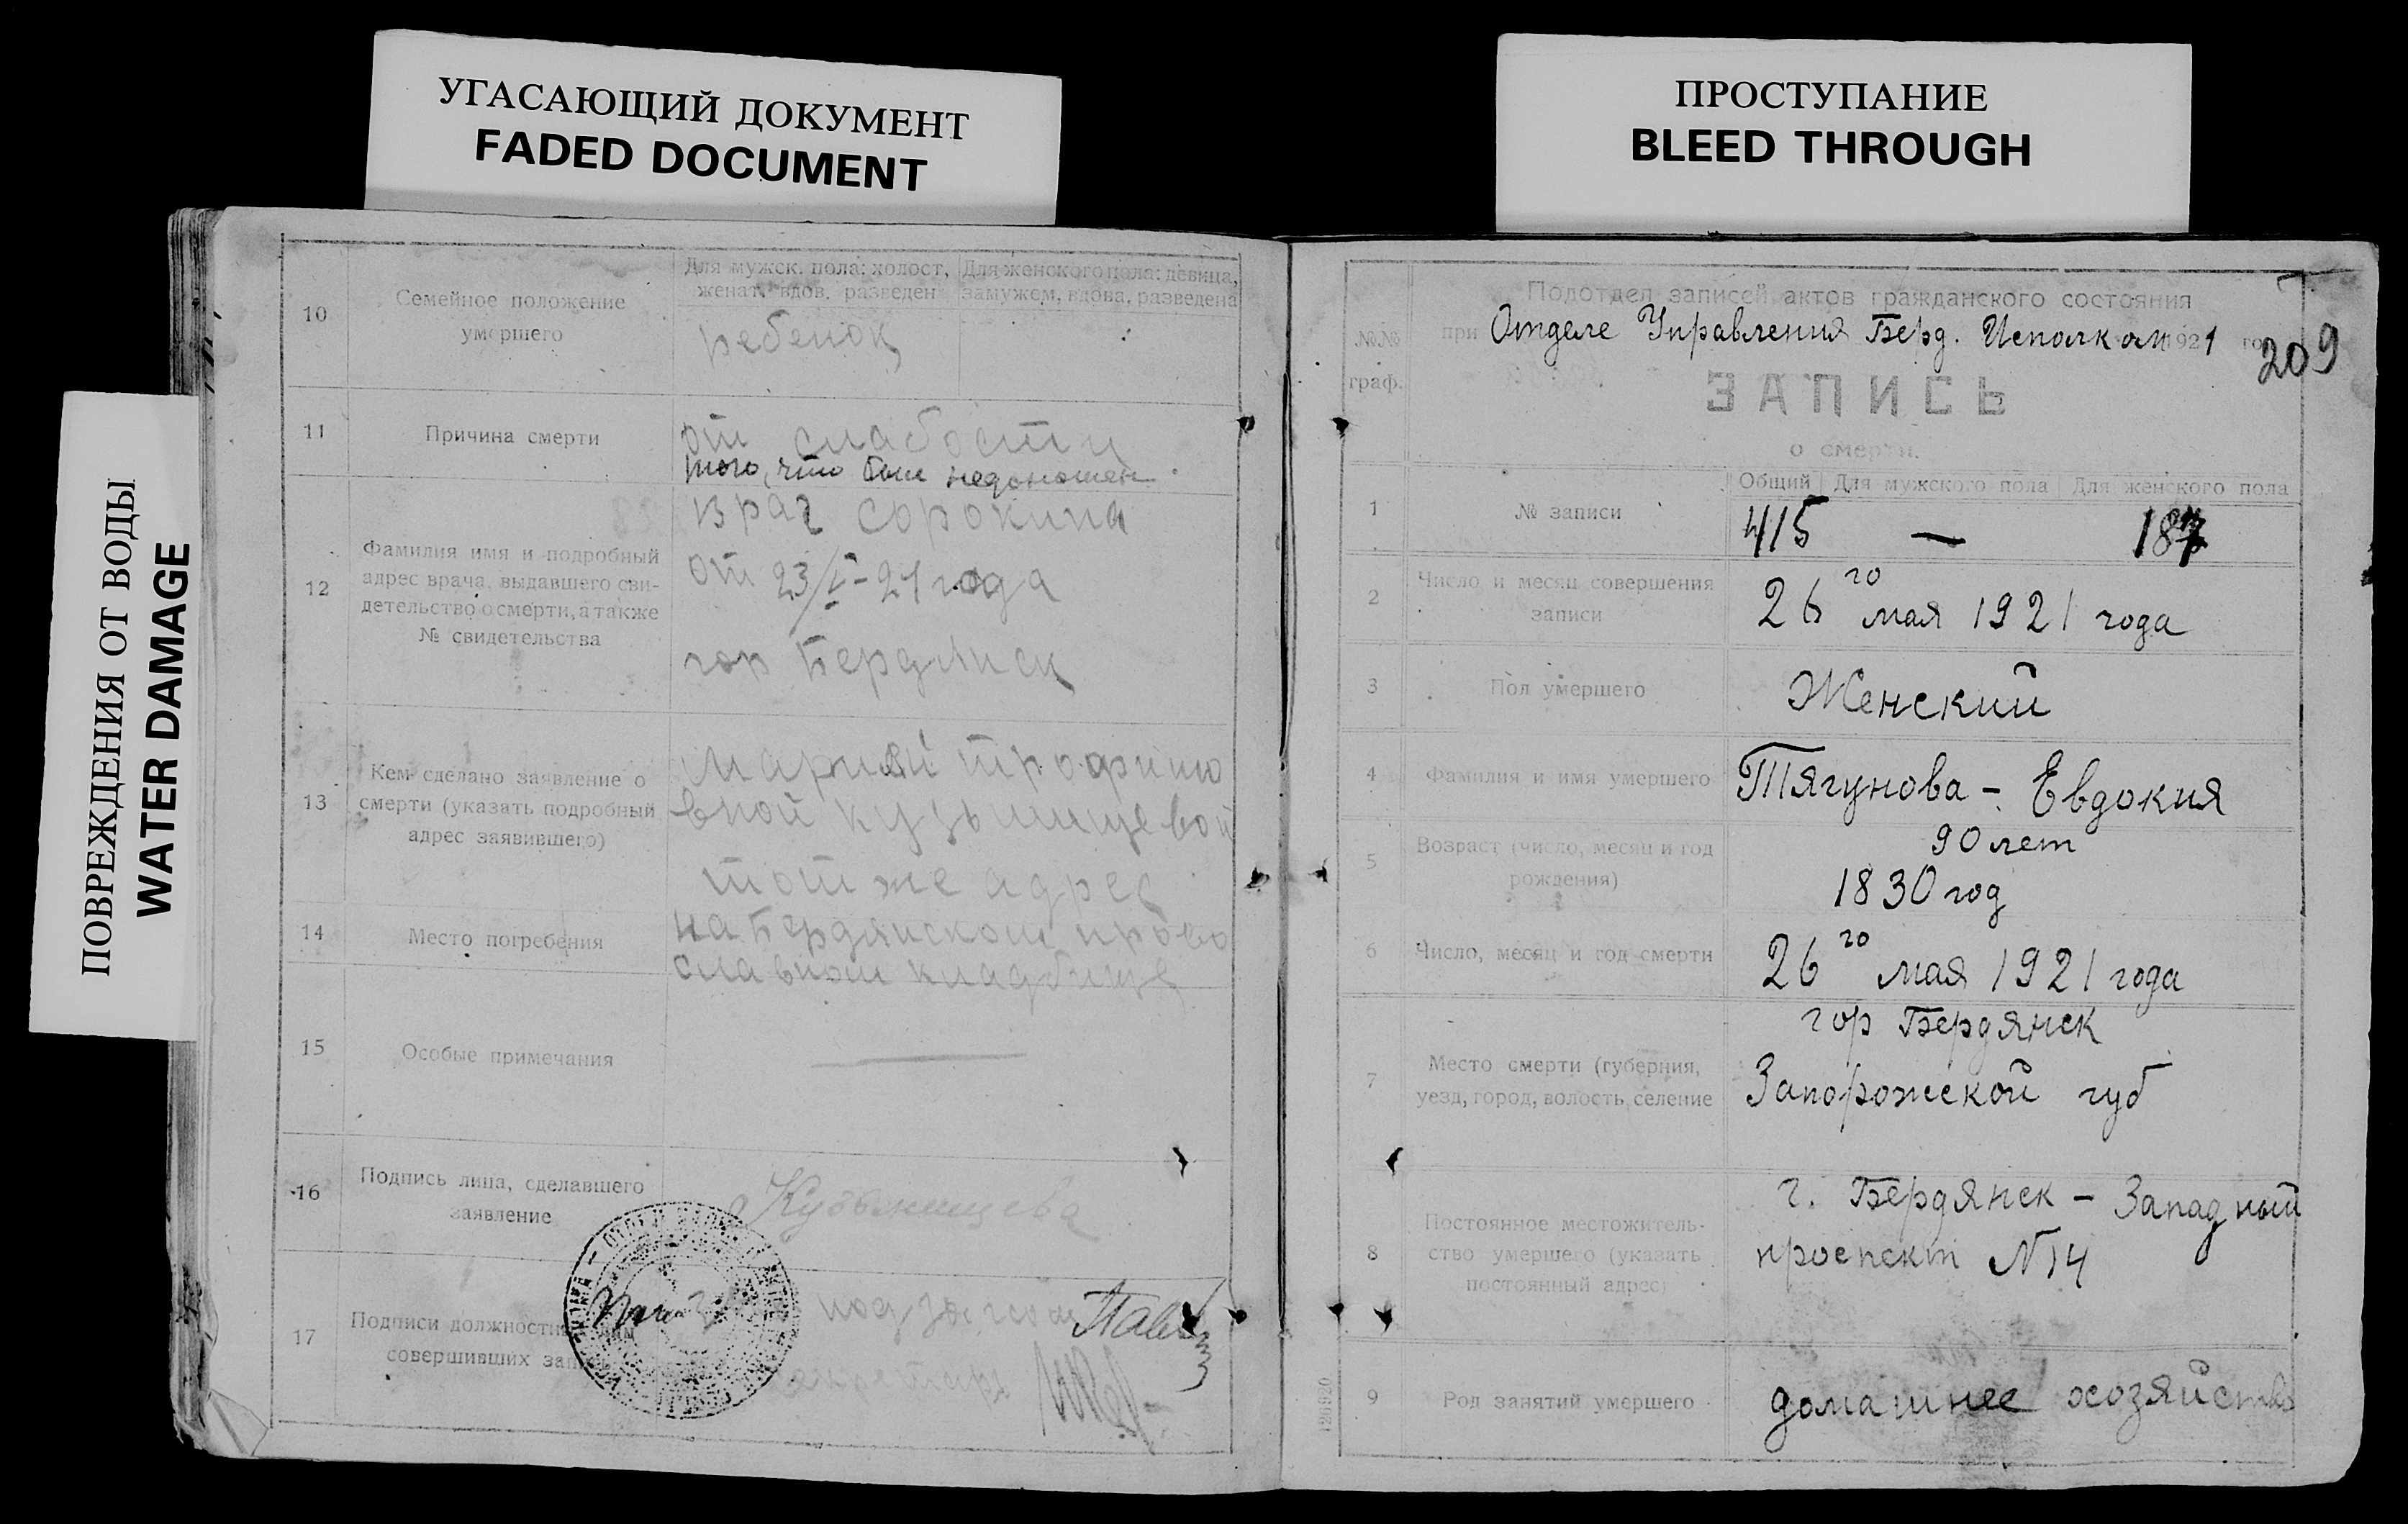 УГАСАЮЩИЙ ДОКУМЕНТ
FADED DOCUMENT
ПРОСТУПАНИЕ
BLEED THROUGH
ПОВРЕЖДЕНИЯ ОТ ВОДЫ
WATER DAMAGE
10
Семейное положение
умершего
Для мужск. пола: холост,
женат, вдов. разведен
Для женского пола: девица,
замужем, вдова, разведена
ребенок
11
Причина смерти
от слабости
того, что был недоношен
12
Фамилия имя и подробный
адрес врача, выдавшего сви-
детельство о смерти, а также
№ свидетельства
врач Сорокина
от 23/V-21 года
гор Бердянск
13
Кем сделано заявление о
смерти (указать подробный
адрес заявившего)
Марией Трофимо
вной Кузьмищевой
тот же адрес
14
Место погребения
на Бердянском право
славном кладбище
15
Особые примечания
16
Подпись лица, сделавшего
заявление
Кузьмищева
17
Подписи должностн
совершивших зап
№№
граф.
Подотдел записей актов гражданского состояния
при Отделе Управления Берд. Исполком 1921 го
209
ЗАПИСЬ
о смерти.
1
№ записи
Общий Для мужского пола Для женского пола
415 — 187
2
Число и месяц совершения
записи
26го мая 1921 года
3
Пол умершего
Женский
4
Фамилия и имя умершего
Тягунова - Евдокия
5
Возраст (число, месяц и год
рождения)
90 лет
1830 год
6
Число, месяц и год смерти
26го мая 1921 года
7
Место смерти (губерния,
уезд, город, волость, селение
гор Бердянск
Запорожской губ
8
Постоянное местожитель-
ство умершего (указать
постоянный адрес)
г. Бердянск - Западный
проспект №14
9
Род занятий умершего
домашнее хозяйство